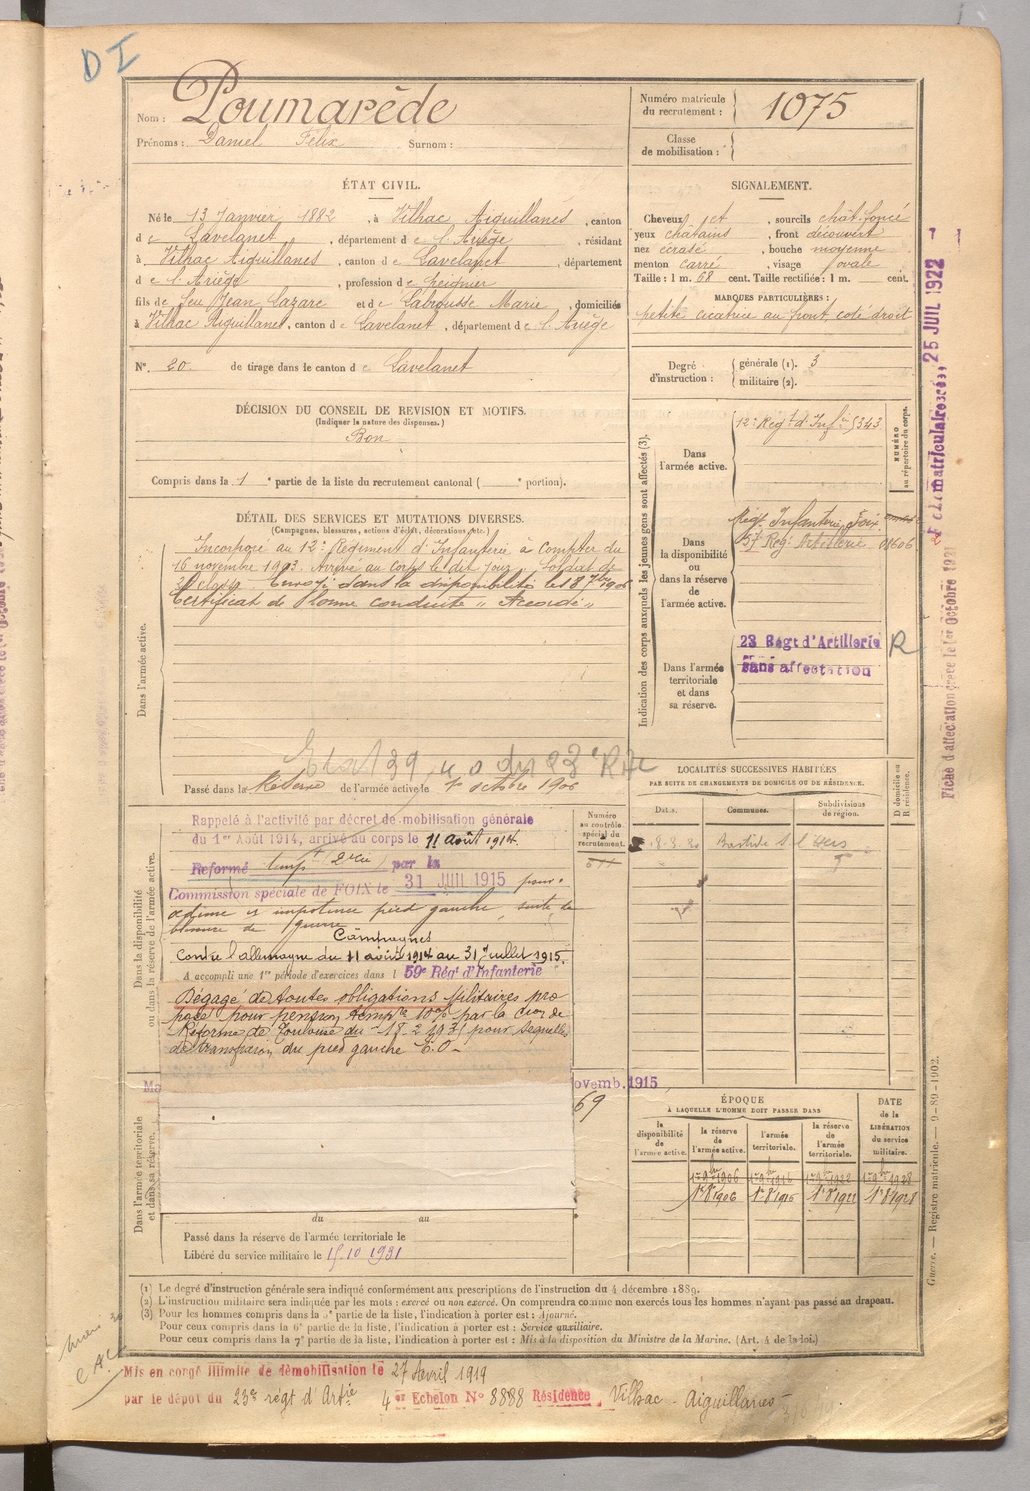 DI
Nom : Poumarède
Prénoms : Daniel Félix Surnom :
Numéro matricule du recrutement : 1075
Classe de mobilisation :
ÉTAT CIVIL.
Né le 13 Janvier 1882, à Vilhac Aiguillanes, canton
de Lavelanet, département de l'Ariège, résidant
à Vilhac Aiguillanes, canton de Lavelanet, département
de l'Ariège, profession de peignier
fils de feu Jean Lazare et de Labrousse Marie, domiciliés
à Vilhac Aiguillanes, canton de Lavelanet, département de l'Ariège
N° 20 de tirage dans le canton de Lavelanet
SIGNALEMENT.
Cheveux et, sourcils chât. foncé
yeux chatains, front découvert
nez écrasé, bouche moyenne
menton carré, visage ovale
Taille : 1 m. 68 cent. Taille rectifiée : 1 m. cent.
MARQUES PARTICULIÈRES :
petite cicatrice au front coté droit
Degré d'instruction : générale (1). 3
militaire (2).
DÉCISION DU CONSEIL DE REVISION ET MOTIFS.
(Indiquer la nature des dispenses.)
Bon
Compris dans la 1e partie de la liste du recrutement cantonal ( e portion).
DÉTAIL DES SERVICES ET MUTATIONS DIVERSES.
(Campagnes, blessures, actions d'éclat, décorations, etc.)
Dans l'armée active.
Incorporé au 12e Régiment d'Infanterie à compter du
16 novembre 1903. Arrivé au corps le dit jour. Soldat de
2e classe. Envoyé dans la disponibilité le 18 7bre 1906
Certificat de Bonne conduite „ Accordé „
Etat 39 du 23e RA
Passé dans la Réserve de l'armée active le 1er octobre 1906
Indication des corps auxquels les jeunes gens sont affectés (3).
NUMÉRO au répertoire du corps.
Dans l'armée active.
12e Régt d'Infie 5343
Dans la disponibilité ou dans la réserve de l'armée active.
Régt Infanterie Foix
57 Reg Artillerie 01606
Dans l'armée territoriale et dans sa réserve.
23 Régt d'Artillerie R
sans affectation
Dans la disponibilité ou dans la réserve de l'armée active.
Rappelé à l'activité par décret de mobilisation générale
du 1er Août 1914, arrivé au corps le 11 août 1914
Réformé tempre par la
Commission spéciale de FOIX le 31 JUIL 1915 pour
œdème et impotence pied gauche, suite de
blessure de guerre
Campagnes
Contre l'allemagne du 11 août 1914 au 31 juillet 1915.
A accompli une 1re période d'exercices dans l 59e Régt d'Infanterie
Dégagé de toutes obligations militaires pro
posé pour pension tempre 10% par la Cion de
Réforme de Toulouse du 18-2 1931 pour séquelles
du pied gauche
Numéro au contrôle spécial du recrutement.
LOCALITÉS SUCCESSIVES HABITÉES
PAR SUITE DE CHANGEMENTS DE DOMICILE OU DE RÉSIDENCE.
Dates. Communes. Subdivisions de région. D domicile ou R résidence.
Bastide S. l'Hers
ovemb. 1915
69
ÉPOQUE
À LAQUELLE L'HOMME DOIT PASSER DANS
la disponibilité de l'armée active. la réserve de l'armée active. l'armée territoriale. la réserve de l'armée territoriale. DATE de la LIBÉRATION du service militaire.
1er 8 1906 1er 8 1916 1er 8 1922 1er 8 1928
Dans l'armée territoriale et dans sa réserve.
du au
Passé dans la réserve de l'armée territoriale le
Libéré du service militaire le 15.10 1931
(1) Le degré d'instruction générale sera indiqué conformément aux prescriptions de l'instruction du 4 décembre 1889.
(2) L'instruction militaire sera indiquée par les mots : exercé ou non exercé. On comprendra comme non exercés tous les hommes n'ayant pas passé au drapeau.
(3) Pour les hommes compris dans la 5e partie de la liste, l'indication à porter est : Ajourné.
Pour ceux compris dans la 6e partie de la liste, l'indication à porter est : Service auxiliaire.
Pour ceux compris dans la 7e partie de la liste, l'indication à porter est : Mis à la disposition du Ministre de la Marine. (Art. 4 de la loi.)
Mis en congé illimité de démobilisation le 27 Avril 1919
par le dépôt du 23e régt d'Artie 4er Echelon N° 8888 Résidence Vilhac - Aiguillanes
matriculaire créé, 25 JUIL 1922
Fiche d'affectation créée le 1er Octobre 1921
Guerre. — Registre matricule. — 9-89-1902.